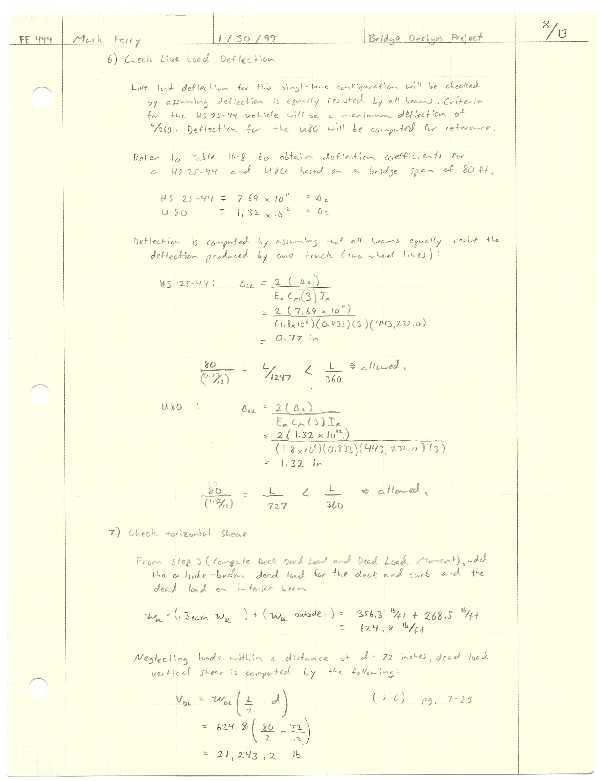 FE 444 Mark Ferry 1/30/99 Bridge Design Project /13
6) Check Live Load Deflection
Live load deflection for this single-lane configuration will be checked
by assuming deflection is equally resisted by all beams. Criteria
for the HS 25-44 vehicle will be a maximum deflection of
L/360. Deflection for the U80 will be computed for reference.
Refer to Table 16-8 to obtain deflection coefficients for
a HS 25-44 and U80 based on a bridge span of 80 ft.
HS 25-44 = 7.69 x 10 = Δc
U80 = 1.32 x 10 = Δc
Deflection is computed by assuming that all beams equally resist the
deflection produced by one truck (two wheel lines):
HS 25-44: ΔLL = 2 (Δc)
Ex Cm (3) Ix
= 2 (7.69 x 10 )
(1.8x10⁶)(0.833)(3)(443,272.0)
= 0.77 in
80 = L/1247 < L/360 ⇒ allowed.
U80 : ΔLL = 2 (Δc)
Ex Cm (3) Ix
= 2 (1.32 x 10 )
(1.8x10⁶)(0.833)(443,272.0)(3)
= 1.32 in
80/(1.32/12) = L/727 < L/360 ⇒ allowed.
7) Check Horizontal Shear
From Step 3 (Compute Deck Dead Load and Dead Load Moment), add
the outside-beam dead load for the deck and curb and the
dead load on interior beam
+ (outside) = 356.3 lb/ft + 268.5 lb/ft
= 624.8 lb/ft
Neglecting loads within a distance of d = 22 inches, dead load
vertical shear is computed by the following:
VDL = WDL (L/2 - d) pg. 7-29
= 624.8 (80/2 - /12)
= 21,243.2 lb